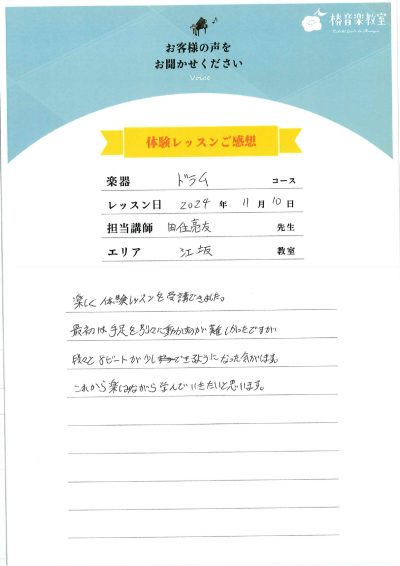 お客様の声を
お聞かせください
Voice
椿音楽教室
体験レッスンご感想
楽器 ドラム コース
レッスン日 2024 年 11 月 10 日
担当講師 田住亮友 先生
エリア 江坂 教室
楽しく体験レッスンを受講できました。
最初は手足を別々に動かすのが難しかったですが
段々と8ビートが少しできるようになった気がします。
これから楽しみながら学んでいきたいと思います。